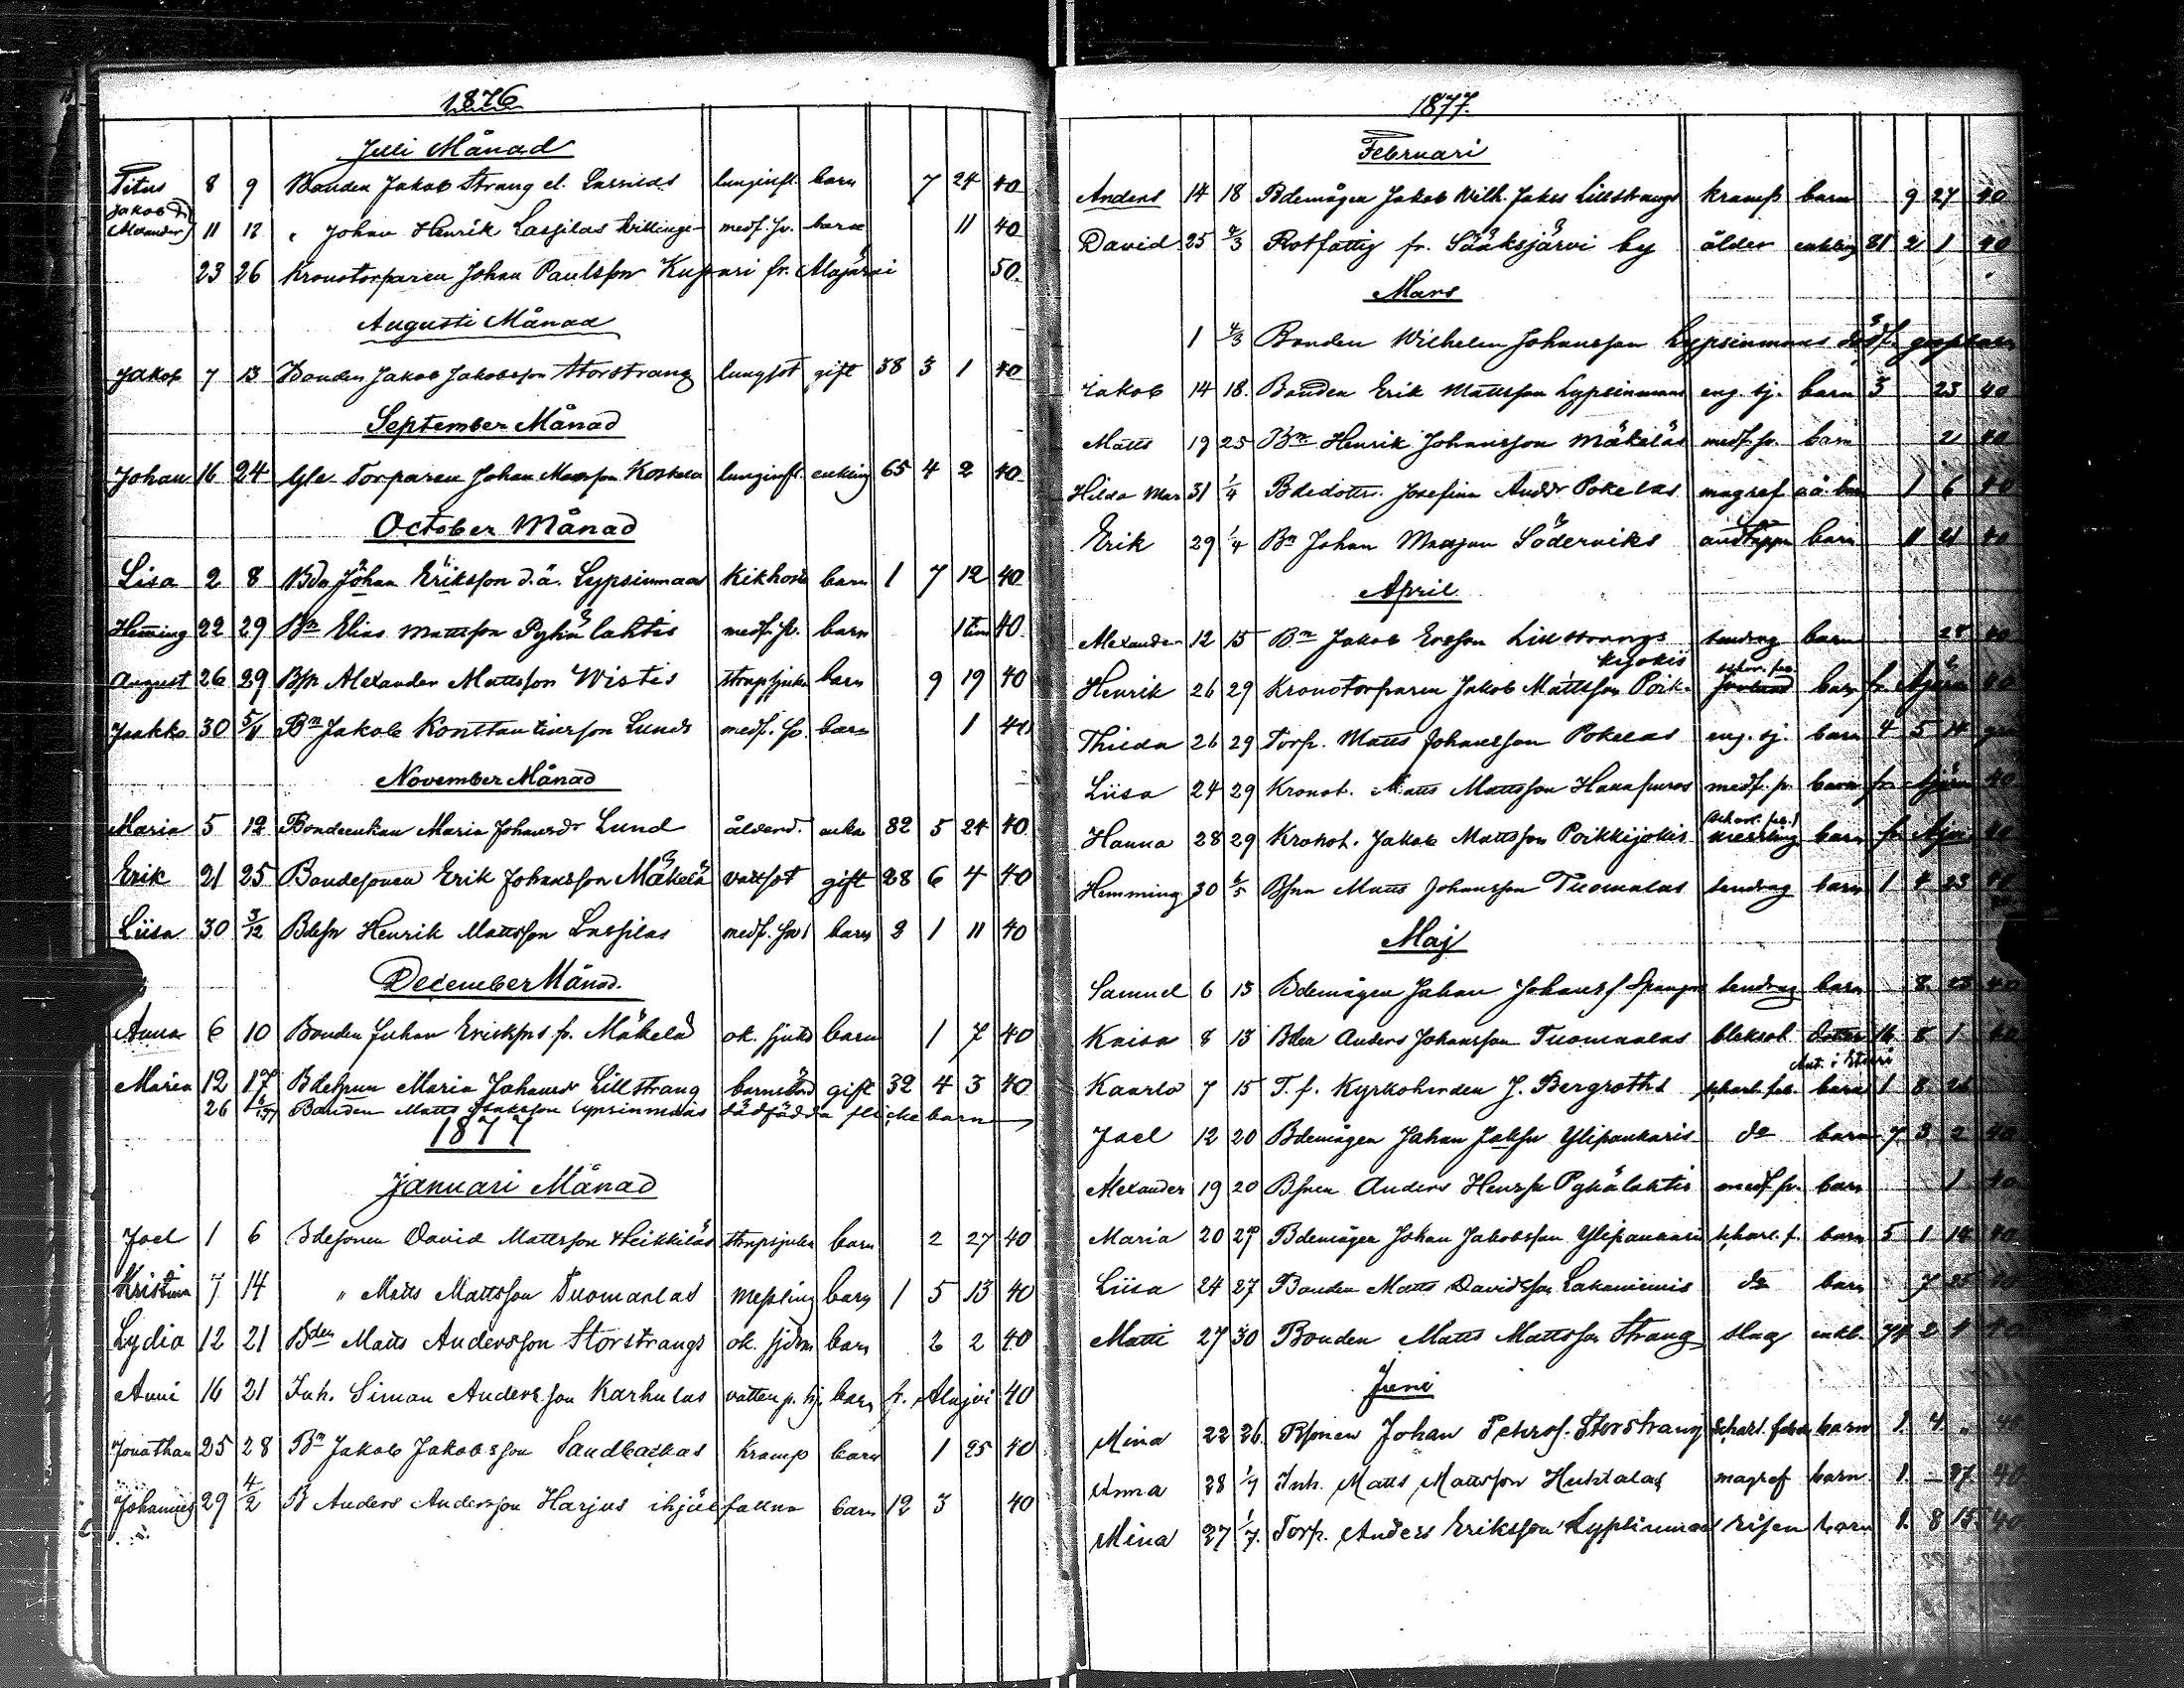 1876
Juli Månad
Titus 8 9 Bonden Jakob Strang el. Lassilas lunginfl. barn 7 24 40
Jakob
Alexander 11 12 " Johan Henrik Lassilas tvillinge- medf. sv. barn 11 40
23 26 Kronotorparen Johan Paulsson Kuppari fr. 50.
Augusti Månad
Jakob 7 13 Bonden Jakob Jakobsson Storstrang lungsot gift 38 3 1 40
September Månad
Johan 16 24 Gle Torparen Johan Mattsson Koskela lunginfl. enkling 65 4 2 40
October Månad
Lisa 2 8 Bdn Johan Eriksson d.ä. Lypsinmaas Kikhosta barn 1 7 12 40
Hemming 22 29 Bn Elias Mattsson Pyhälahtis medf. sv. barn 1 tim 40
August 26 29 Bsn Alexander Mattsson Wistis strupsjuka barn 9 19 40
Jaakko 30 5/11 Bn Jakob Konstantinsson Lunds medf. sv. barn 1 40
November Månad
Maria 5 12 Bondeenkan Maria Johansdr Lund ålderd. enka 82 5 24 40
Erik 21 25 Bondesonen Erik Johansson Mäkelä vattsot gift 28 6 4 40
Liisa 30 3/12 Bdesn Henrik Mattsson Lassilas medf. sv. barn 2 1 11 40
December Månad.
Anna 6 10 Bonden Juhan fr. Mäkelä ok. sjukd barn 1 7 40
Maria 12 17 Bdehrun Maria Johansdr Lillstrang barnsbörd gift 32 4 3 40
26 Bonden Matts Isaksson Lypsinmaas dödfödda flickebarn
1877
Januari Månad
Joel 1 6 Bdesonen David Mattsson Heikkiläs strupsjuka barn 2 27 40
Kristina 7 14 " Matts Mattsson Tuomaalas messling barn 1 5 13 40
Lydia 12 21 Bden Matts Andersson Storstrangs ok. sjdm barn 2 2 40
Anni 16 21 Inh. Simon Andersson Karhulas vatten p. hj. barn fr. Alajvi 40
Jonathan 25 28 Bn Jakob Jakobsson Sandbackas Kramp barn 1 25 40
Johannes 29 4/2 B Anders Andersson Harjus ihjälfallna barn 12 3 40
1877.
Februari
Anders 14 18 Bdemågen Jakob Wilh. Jakss Lillstrangs kramp barn 9 27 40
David 25 4/3 Rotfattig fr. Sääksjärvi by ålder enkling 81 2 1 40
Mars
1 4/3 Bonden Wilhelm Johansson Lypsinmaas dödf. gossbarn
Jakob 14 18. Bonden Erik Mattsson Lypsinmaas eng. sj. barn 3 23 40
Matts 19 25 Bn Henrik Johansson Mäkeläs medf. sv. barn 2 40
Hilda Mar 31 1/4 Bdedottr. Josefina Andsdr Pokelas magref oä. barn 1 6 40
Erik 29 1/4 Bn Johan Mattsson Söderviks andtäppa barn 11 21 40
April
Alexander 12 15 Bn Jakob Ersson Lillstrangs sendrag barn 28 40
Henrik 26 29 Kronotorparen Jakob Mattsson Poikkijokis skarl. feb. barn fr. 40
Thilda 26 29 Torp. Matts Johansson Pokelas eng. sj. barn 4 5 14
Liisa 24 29 Kronot. Matts Mattsson Hauapuros medf. sv. barn fr 40
Hanna 28 29 Kronot. Jakob Mattsson Poikkijokis (skarl. feb.) messling barn fr 40
Hemming 30 6/5 Bsnn Matts Johansson Tuomalas sendrag barn 1 4 23 40
Maj
Samuel 6 13 Bdemågen Johan Johanss Spangar sendrag barn 8 23 40
Kaisa 8 13 Bden Anders Johansson Tuomaalas bleksot dotter 16 8 1 40
Kaarlo 7 15 T. f. Kyrkoherden J. Bergroths skarl. feb. barn 1 8 26
Joel 12 20 Bdemågen Johan Jakssn Ylipankaris do barn 7 3 2 40
Alexander 19 20 Bsnen Anders Henrssn Pyhälahtis medf. sv. barn 1 40
Maria 20 27 Bdemågen Johan Jakobsson Ylipankaris skarl. f. barn 5 1 14 40
Liisa 24 27 Bonden Matts Davidsson Lakaniemis do barn 7 25 40
Matti 27 30 Bonden Matts Mattsson Strang slag enkl. 74 2 1 40
Juni
Mina 22 26. Bsonen Johan Petterss. Storstrang skarl. feber barn 1. 4 " 40
Anna 28 1/7 Inh. Matts Mattsson Huhtalas magref barn 1. – 27 40
Mina 27 1/7. Torp. Anders Eriksson Lypsinmaas risen barn 1. 8 15. 40